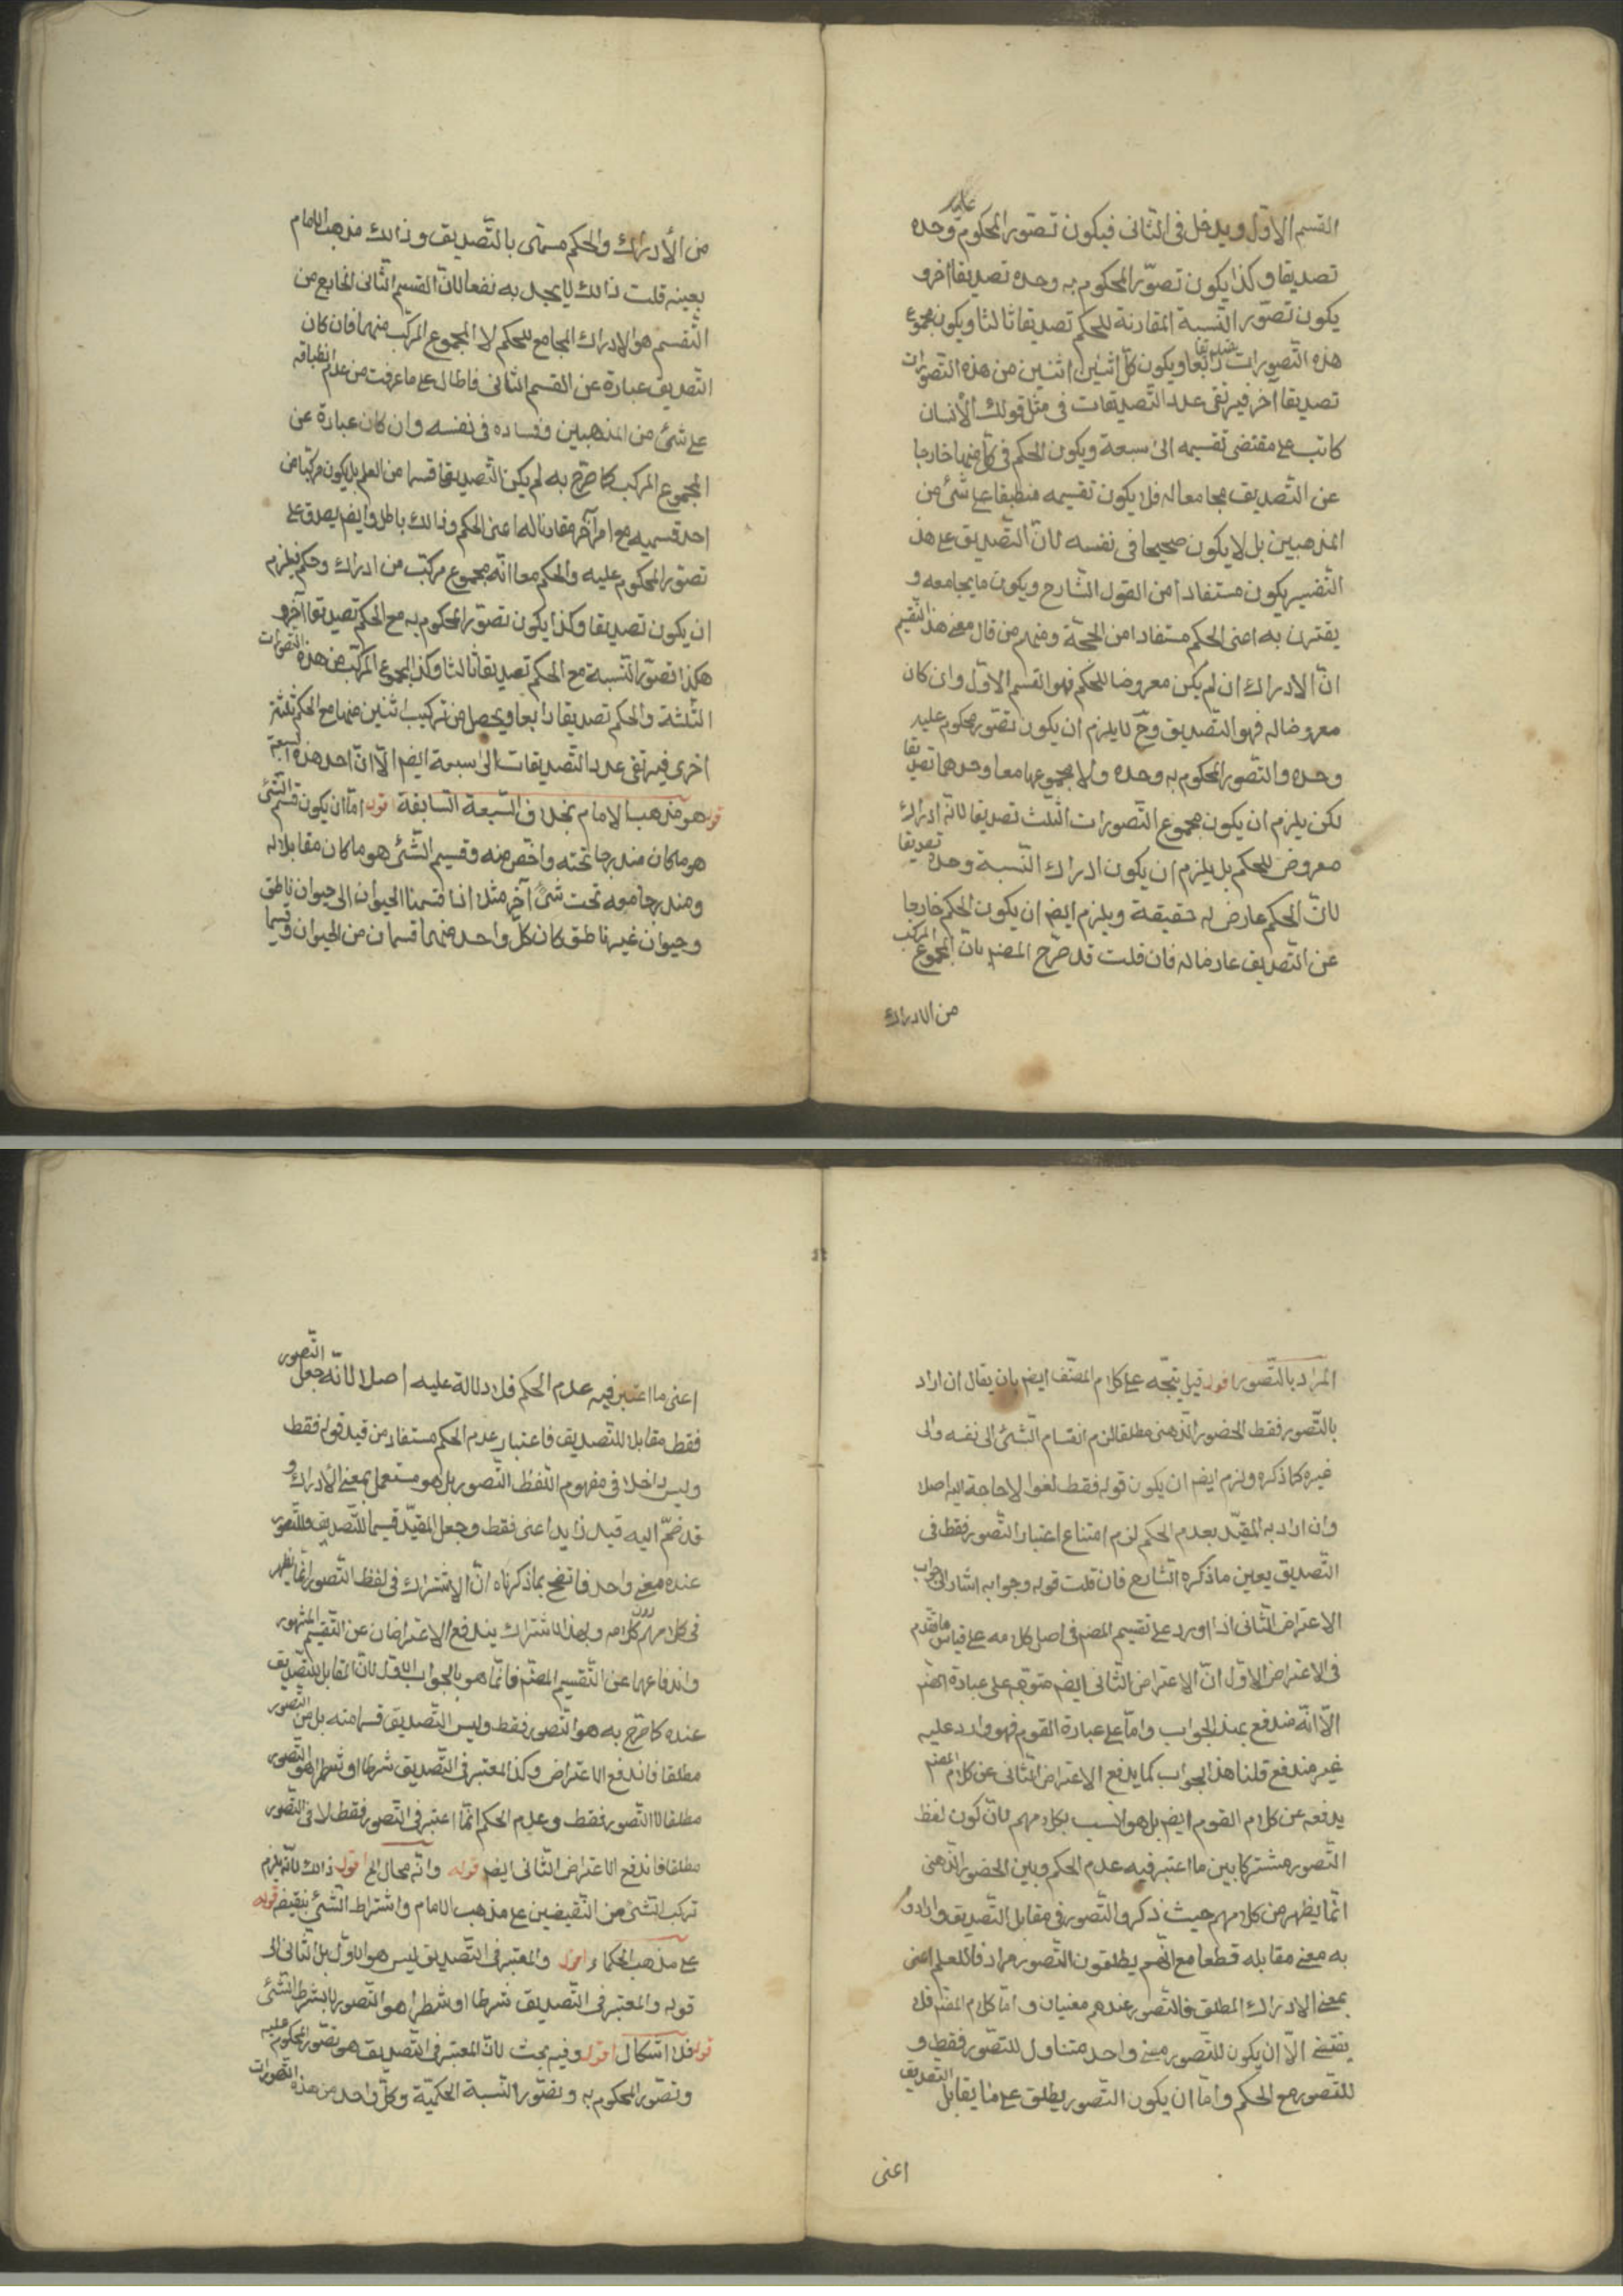 القسم الاول ويدخل فى الثانى فيكون تصور المحكوم عليه وحده
تصديقا وكذا يكون تصور المحكوم به وحده تصديقا اخر و
يكون تصور النسبة المقارنة للحكم تصديقا ثالثا ويكون مجموع
هذه التصورات تصديقا رابعا ويكون كل اثنين اثنين من هذه التصورات
تصديقا اخر فيرتقى عدد التصديقات فى مثل قولك الانسان
كاتب على مقتضى تقسيمه الى سبعة ويكون الحكم فى كل منها خارجا
عن التصديق مجامعا له فلا يكون تقسيمه منطبقا على شئ من
المذهبين بل لا يكون صحيحا فى نفسه لان التصديق على هذا
التفسير يكون مستفادا من القول الشارح ويكون ما يجامعه و
يقترن به اعنى الحكم مستفادا من الحجة ومنهم من قال معنى هذا التقسيم
ان الادراك ان لم يكن معروضا للحكم فهو القسم الاول وان كان
معروضا له فهو التصديق وح لا يلزم ان يكون تصور محكوم عليه
وحده والتصور المحكوم به وحده ولا مجموعهما معا وحدهما تصديقا
لكن يلزم ان يكون مجموع التصورات الثلث تصديقا لانه ادراك
معروض للحكم بل يلزم ان يكون ادراك النسبة وحده تصديقا
لان الحكم عارض له حقيقة ويلزم ايضا ان يكون الحكم خارجا
عن التصديق عارضا له فان قلت قد صرح المص بان المجموع المركب
من الادراك
من الأدراك والحكم مسمى بالتصديق وذالك مذهب الامام
بعينه قلت ذالك لا يجد به نفعا لان القسم الثانى الخارج من
التقسيم هو الادراك المجامع للحكم لا المجموع المركب منهما فان كان
التصديق عبارة عن القسم الثانى فاطال على ما عرفت من عدم انطباقه
على شئ من المذهبين وفساده فى نفسه وان كان عبارة عن
المجموع المركب كما صرح به لم يكن التصديق قسما من العلم بل يكون مركبا من
احد قسميه مع امر آخر مقارنا له اعنى الحكم وذالك باطل وايضم يصدق على
تصور المحكوم عليه والحكم معا انه مجموع مركب من ادراك وحكم فيلزم
ان يكون تصديقا وكذا يكون تصور المحكوم به مع الحكم تصديقا آخر و
هكذا تصور النسبة مع الحكم تصديقا ثالثا وكذا المجموع المركب من هذه التصورات
الثلثة والحكم تصديقا رابعا ويحصل من تركيب اثنين منها مع الحكم ثلثة
اخرى فيرتقى عدد التصديقات الى سبعة ايضم الا ان احد هذه السبعة
هو مذهب الامام بخلاف السبعة السابقة قوله اما ان يكون قسم الشئ قوله
هو ما كان مندرجا تحته واخص منه وقسيم الشئ هو ما كان مقابلا له
ومندرجا معه تحت شئ آخر مثلا اذا قسمنا الحيوان الى حيوان ناطق
وحيوان غير ناطق كان كل واحد منهما قسما من الحيوان وقسيما
المراد بالتصور اقول قيل يتجه على كلام المصنف ايضم بان يقال ان اراد
بالتصور فقط الحضور الذهنى مطلقا لزم انقسام الشئ الى نفسه والى
غيره كما ذكره ولزم ايضم ان يكون قوله فقط لغوا لا حاجة اليه اصلا
وان اراد به المقيد بعدم الحكم لزم امتناع اعتبار التصور فقط فى
التصديق بعين ما ذكره الشارح فان قلت قوله وجوابه اشار الى جواب
الاعتراض الثانى اذا اورد على تقسيم المصم فى اصل كلامه على قياس ما تقدم
فى الاعتراض الاول ان الاعتراض الثانى ايضم متوجه على عبارة المصم
الا انه مندفع بهذ الجواب واما على عبارة القوم فهو وارد عليه
غير مندفع قلنا هذ الجواب كما يدفع الاعتراض الثانى عن كلام المصم
يدفعه عن كلام القوم ايضم بل هو انسب بكلامهم لان كون لفظ
التصور مشتركا بين ما اعتبر فيه عدم الحكم وبين الحضور الذهنى
انما يظهر من كلامهم حيث ذكروا التصور فى مقابل التصديق وارادوا
به معنى مقابله قطعا مع انهم يطلقون التصور مرادفا للعلم اعنى
بمعنى الادراك المطلق فالتصور عندهم معنيان واما كلام المصم فلا
يقتضى الا ان يكون للتصور معنى واحد متناول للتصور فقط و
للتصور مع الحكم واما ان يكون التصور يطلق على ما يقابل التصديق
اعنى
اعنى ما اعتبر فيه عدم الحكم فلا دلالة عليه اصلا لانه جعل التصور
فقط مقابلا للتصديق فاعتبار عدم الحكم مستفاد من قيد قوله فقط
وليس داخلا فى مفهوم اللفظ التصور بل هو مستعمل بمعنى الأدراك و
قد ضم اليه قيد زايد اعنى فقط وجعل المقيد قسيما للتصديق فللتصور
عنده معنى واحد فاتضح بما ذكرناه ان الاشتراك فى لفظ التصور انما يظهر
فى كلامهم دون كلامه وبهذا الاشتراك يندفع الاعتراضان عن التقسيم المشهور
واندفاعهما عن التقسيم المصم فانما هو بالجواب الاول لان المقابل للتصديق
عنده كما صرح به هو التصور فقط وليس التصديق قسما منه بل من التصور
مطلقا فاندفع الاعتراض وكذا المعتبر فى التصديق شرطا او شطرا هو التصور
مطلقا لا التصور فقط وعدم الحكم انما اعتبر فى التصور فقط لا فى التصور
مطلقا فاندفع الاعتراض الثانى ايضم قوله وانه محال الخ اقول ذالك لانه يلزم
تركب الشئ من النقيضين على مذهب الامام واشتراط الشئ بنقيضه قوله
على مذهب الحكماء اقول والمعتبر فى التصديق ليس هو الاول بل الثانى الى
قوله والمعتبر فى التصديق شرطا او شطرا هو التصور لا بشرط الشئ
قوله فلا اشكال اقول وفيه بحث لان المعتبر فى التصديق هو تصور المحكوم عليه
وتصور المحكوم به وتصور النسبة الحكمية وكل واحد من هذه التصورات